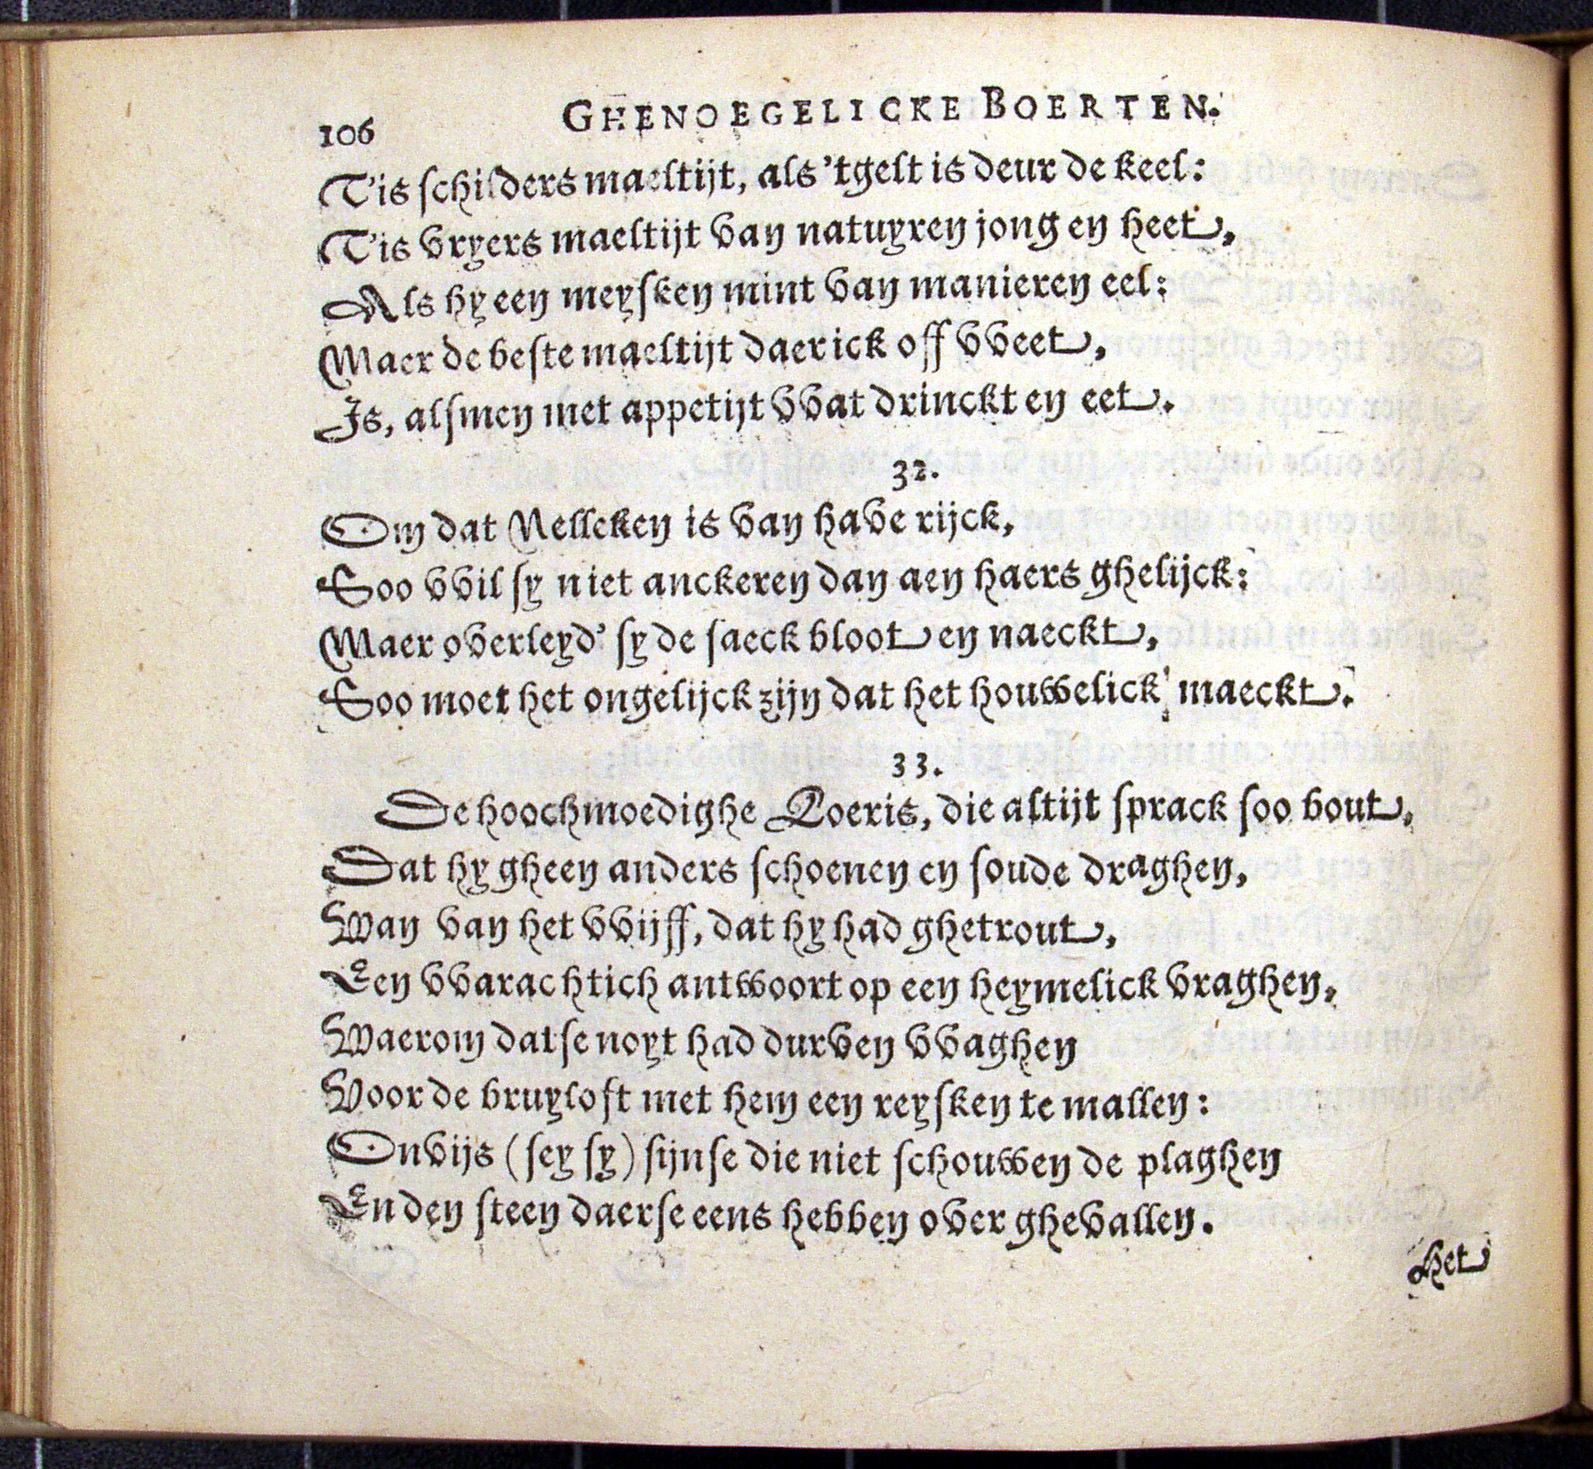 106 GHENOEGELICKE BOERTEN.
T'is schilders maeltijt, als 'tgelt is deur de keel:
T'is vryers maeltijt van natuyren jong en heet,
Als hy een meysken mint van manieren eel:
Maer de beste maeltijt daer ick off vveet,
Is, alsmen met appetijt vvat drinckt en eet.
32.
Om dat Nelleken is van have rijck,
Soo vvil sy niet anckeren dan aen haers ghelijck:
Maer overleyd' sy de saeck bloot en naeckt,
Soo moet het ongelijck zijn dat het houwelick maeckt.
33.
De hoochmoedighe Loeris, die altijt sprack soo bout,
Dat hy gheen anders schoenen en soude draghen,
Wan van het vvijff, dat hy had ghetrout,
Een vvarachtich antwoort op een heymelick vraghen,
Waerom datse noyt had durven vvaghen
Voor de bruyloft met hem een reysken te mallen:
Onvijs (sey sy) sijnse die niet schouwen de plaghen
En den steen daerse eens hebben over ghevallen.
het